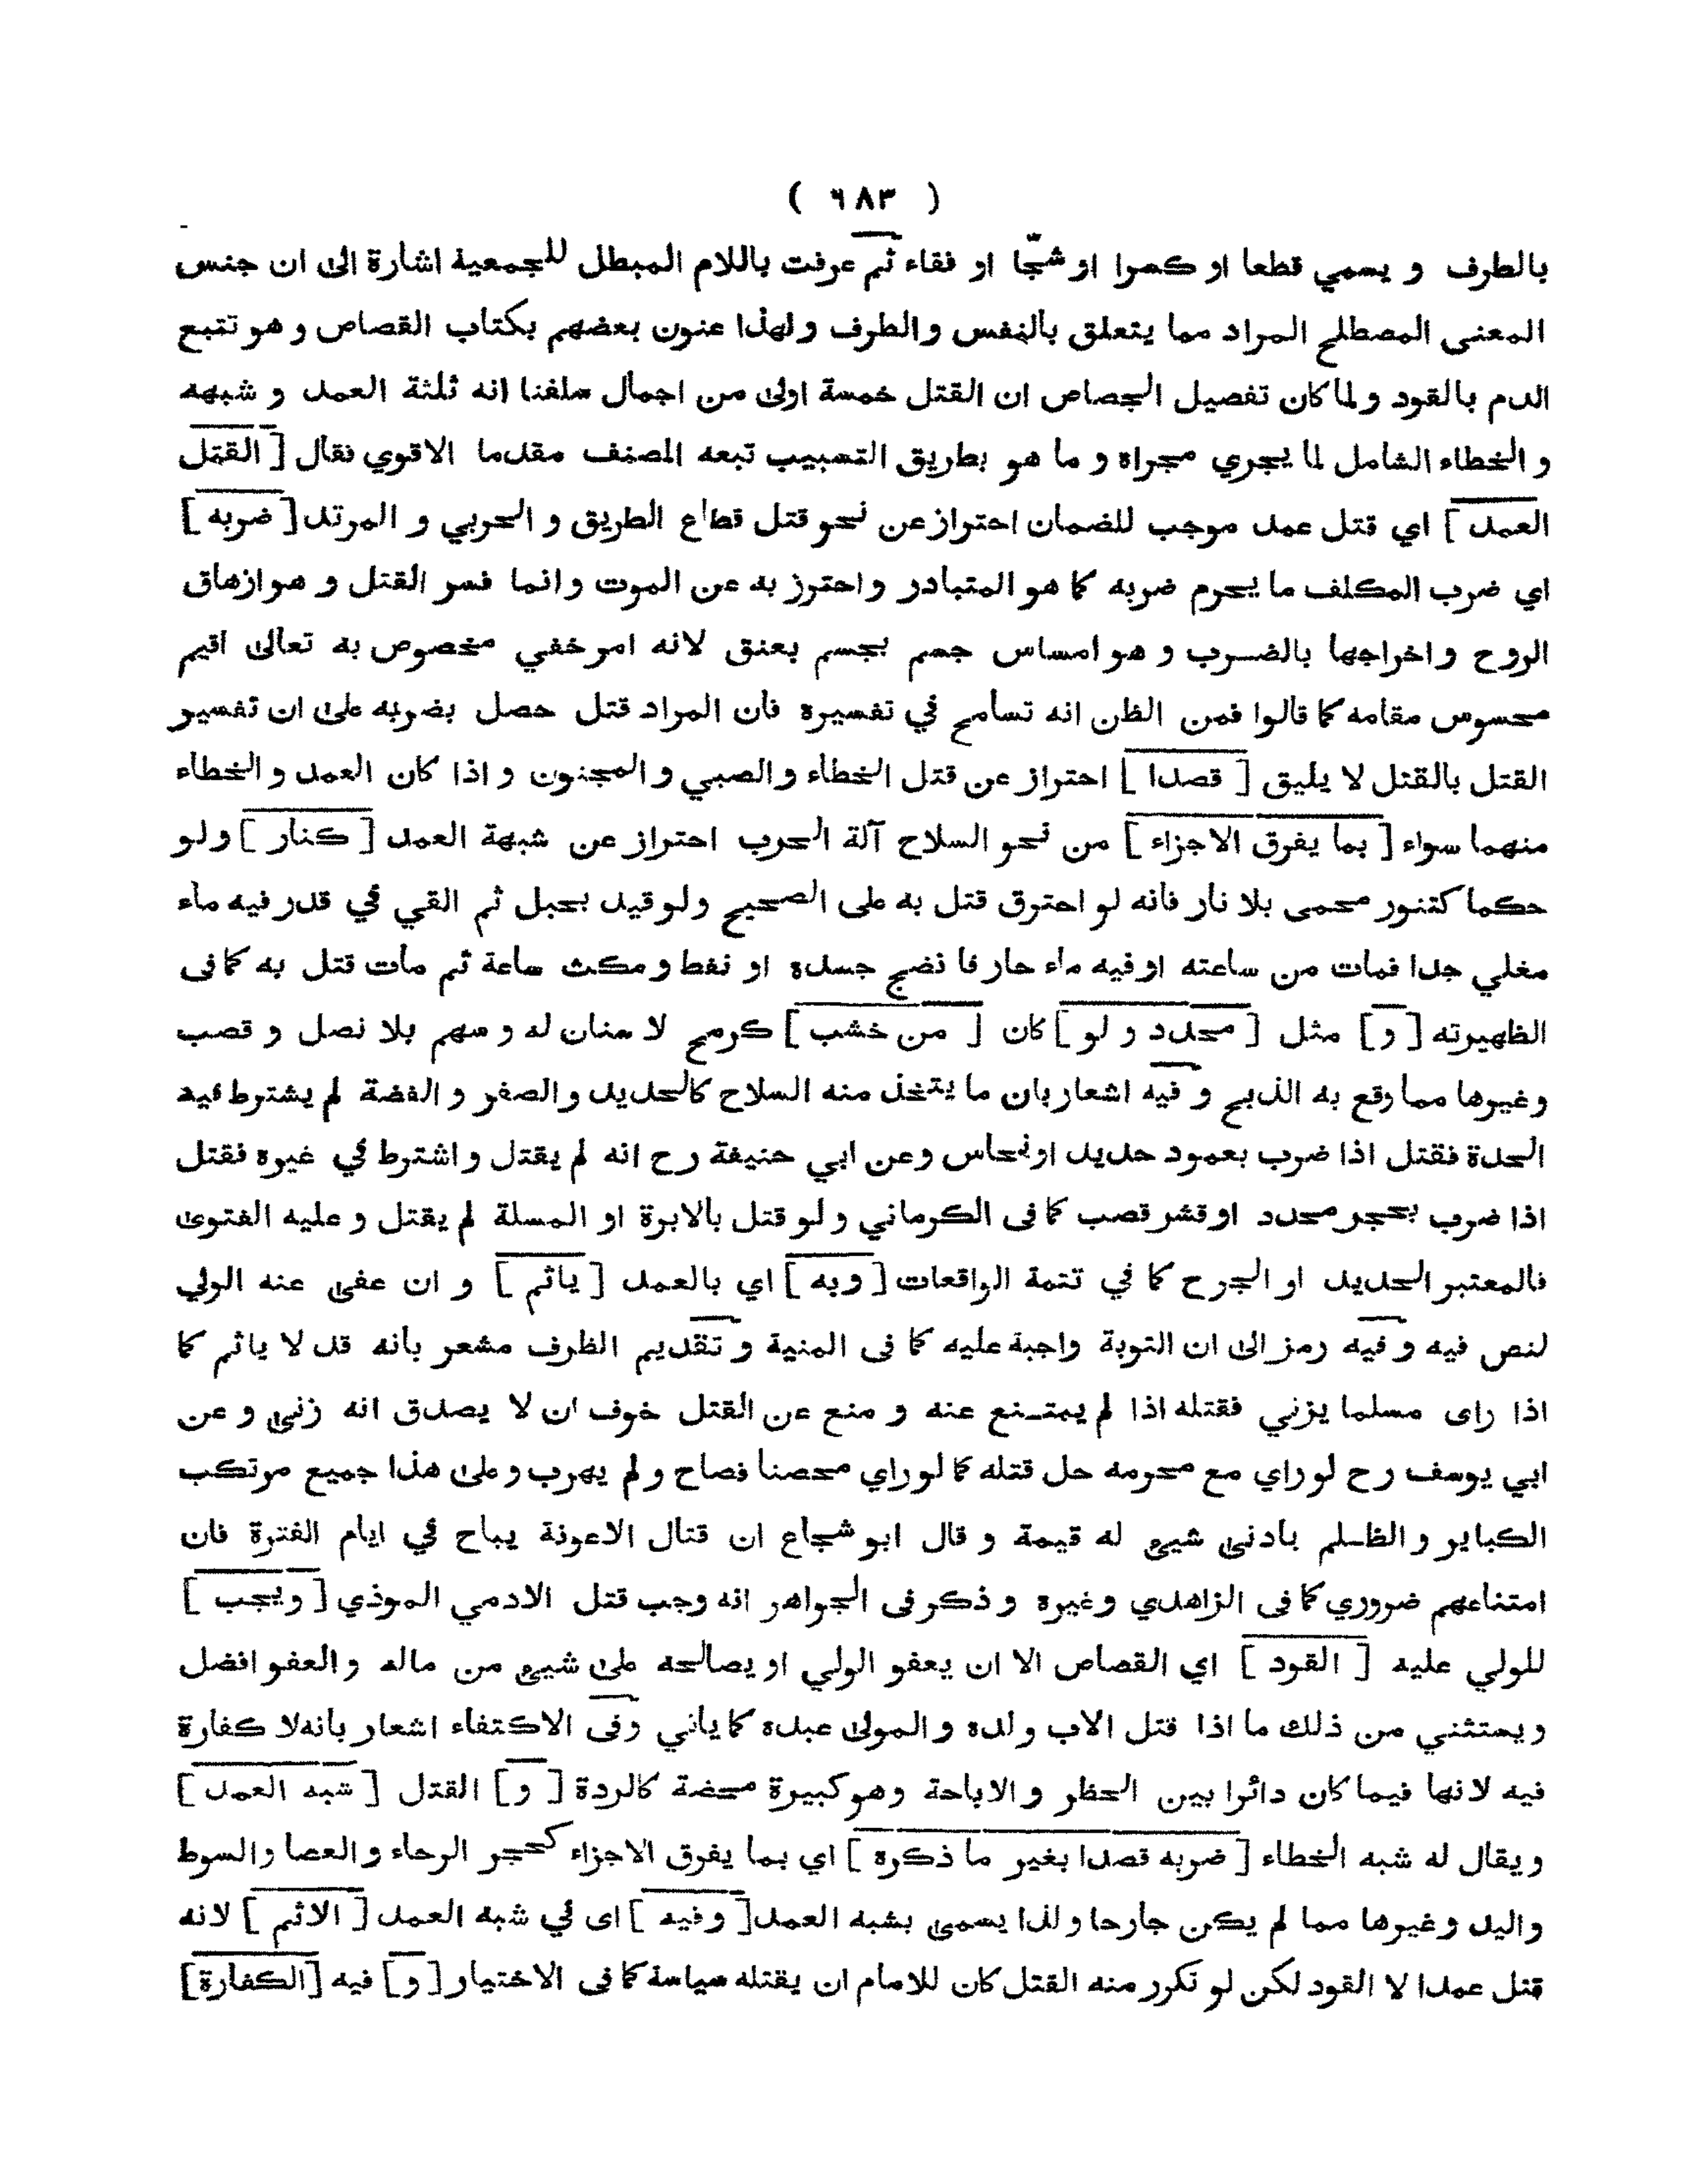 ( ٦٨٣ )
بالطرف و يسمي قطعا او كسرا او شجّا او فقاء ثم عرفت باللام المبطل للجمعية اشارة الى ان جنس
المعنى المصطلح المراد مما يتعلق بالنفس و الطرف و لهذا عنون بعضهم بكتاب القصاص و هو تتبع
الدم بالقود و لما كان تفصيل الجصاص ان القتل خمسة اولى من اجمال سلفنا انه ثلثة العمد و شبهه
و الخطاء الشامل لما يجري مجراه و ما هو بطريق التسبيب تبعه المصنف مقدما الاقوي فقال [ القتل
العمد ] اي قتل عمد موجب للضمان احتراز عن نحو قتل قطاع الطريق و الحربي و المرتد [ ضربه ]
اي ضرب المكلف ما يحرم ضربه كما هو المتبادر و احترز به عن الموت و انما فسر القتل و هو ازهاق
الروح و اخراجها بالضرب و هو امساس جسم بجسم بعنق لانه امر خفي مخصوص به تعالى اقيم
محسوس مقامه كما قالوا فمن الظن انه تسامح في تفسيره فان المراد قتل حصل بضربه على ان تفسير
القتل بالقتل لا يليق [ قصدا ] احتراز عن قتل الخطاء و الصبي و المجنون و اذا كان العمد و الخطاء
منهما سواء [ بما يفرق الاجزاء ] من نحو السلاح آلة الحرب احتراز عن شبهة العمد [ كنار ] و لو
حكما كتنور محمى بلا نار فانه لو احترق قتل به على الصحيح و لو قيد بحبل ثم القي في قدر فيه ماء
مغلي جدا فمات من ساعته او فيه ماء حار فا نضج جسده او نفط و مكث ساعة ثم مات قتل به كما فى
الظهيرته [ و ] مثل [ محدد و لو ] كان [ من خشب ] كرمح لا سنان له و سهم بلا نصل و قصب
و غيرها مما وقع به الذبح و فيه اشعار بان ما يتخذ منه السلاح كالحديد و الصفر و الفضة لم يشترط فيه
الحدة فقتل اذا ضرب بعمود حديد او نحاس و عن ابي حنيفة رح انه لم يقتل و اشترط في غيره فقتل
اذا ضرب بحجر محدد او قشر قصب كما فى الكرماني و لو قتل بالابرة او المسلة لم يقتل و عليه الفتوى
فالمعتبر الحديد او الجرح كما في تتمة الواقعات [ و به ] اي بالعمد [ ياثم ] و ان عفى عنه الولي
لنص فيه و فيه رمز الى ان التوبة واجبة عليه كما فى المنية و تقديم الظرف مشعر بانه قد لا ياثم كما
اذا راى مسلما يزني فقتله اذا لم يمتنع عنه و منع عن القتل خوف ان لا يصدق انه زنى و عن
ابي يوسف رح لو راي مع محرمه حل قتله كما لو راي محصنا فصاح و لم يهرب و على هذا جميع مرتكب
الكباير و الظلم بادنى شيئ له قيمة و قال ابو شجاع ان قتال الاعونة يباح في ايام الفترة فان
امتناعهم ضروري كما فى الزاهدي و غيره و ذكر فى الجواهر انه وجب قتل الادمي الموذي [ و يجب ]
للولي عليه [ القود ] اي القصاص الا ان يعفو الولي او يصالحه على شيئ من ماله و العفو افضل
و يستثني من ذلك ما اذا قتل الاب ولده و المولى عبده كما ياتي و فى الاكتفاء اشعار بانه لا كفارة
فيه لانها فيما كان دائرا بين الحظر و الاباحة و هو كبيرة محضة كالردة [ و ] القتل [ شبه العمد ]
و يقال له شبه الخطاء [ ضربه قصدا بغير ما ذكره ] اي بما يفرق الاجزاء كحجر الرحاء و العصا و السوط
و اليد و غيرها مما لم يكن جارحا و لذا يسمى بشبه العمد [ و فيه ] اى في شبه العمد [ الاثم ] لانه
قتل عمدا لا القود لكن لو تكرر منه القتل كان للامام ان يقتله سياسة كما فى الاختيار [ و ] فيه [ الكفارة ]